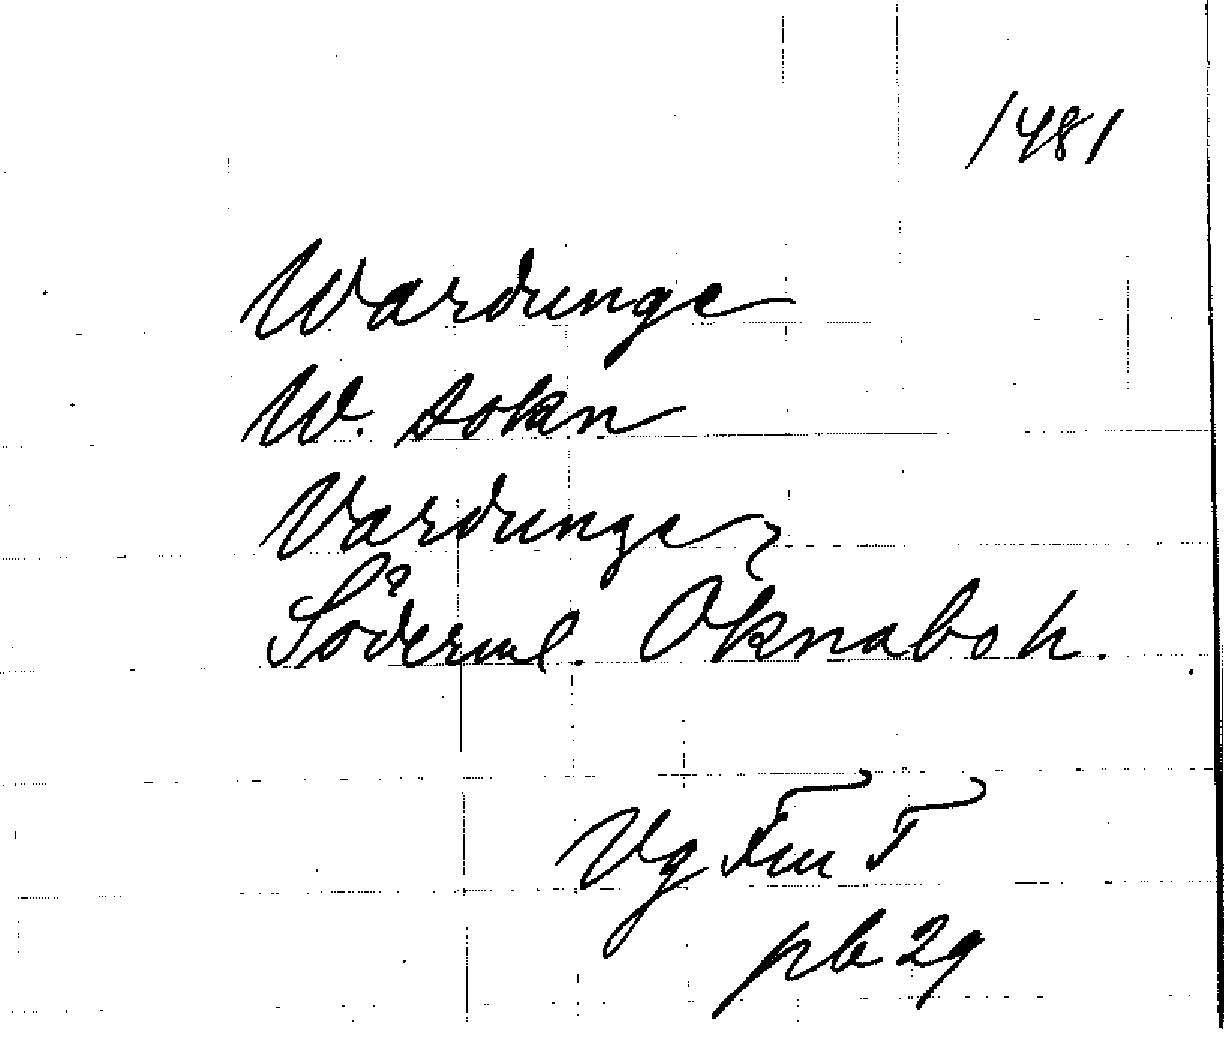 1481
Wardunge
W. sokn
Vardunge,
Söderml. Oknabo h.
Vg FmT
pb 29